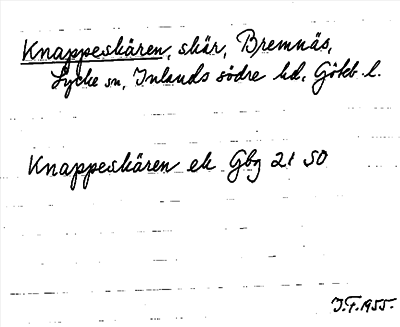 Knappeskären, skär, Bremnäs,
Lycke sn, Inlands södre hd, Götbb. l.
Knappeskären ek Gbg 21 SO
J.F. 1955.